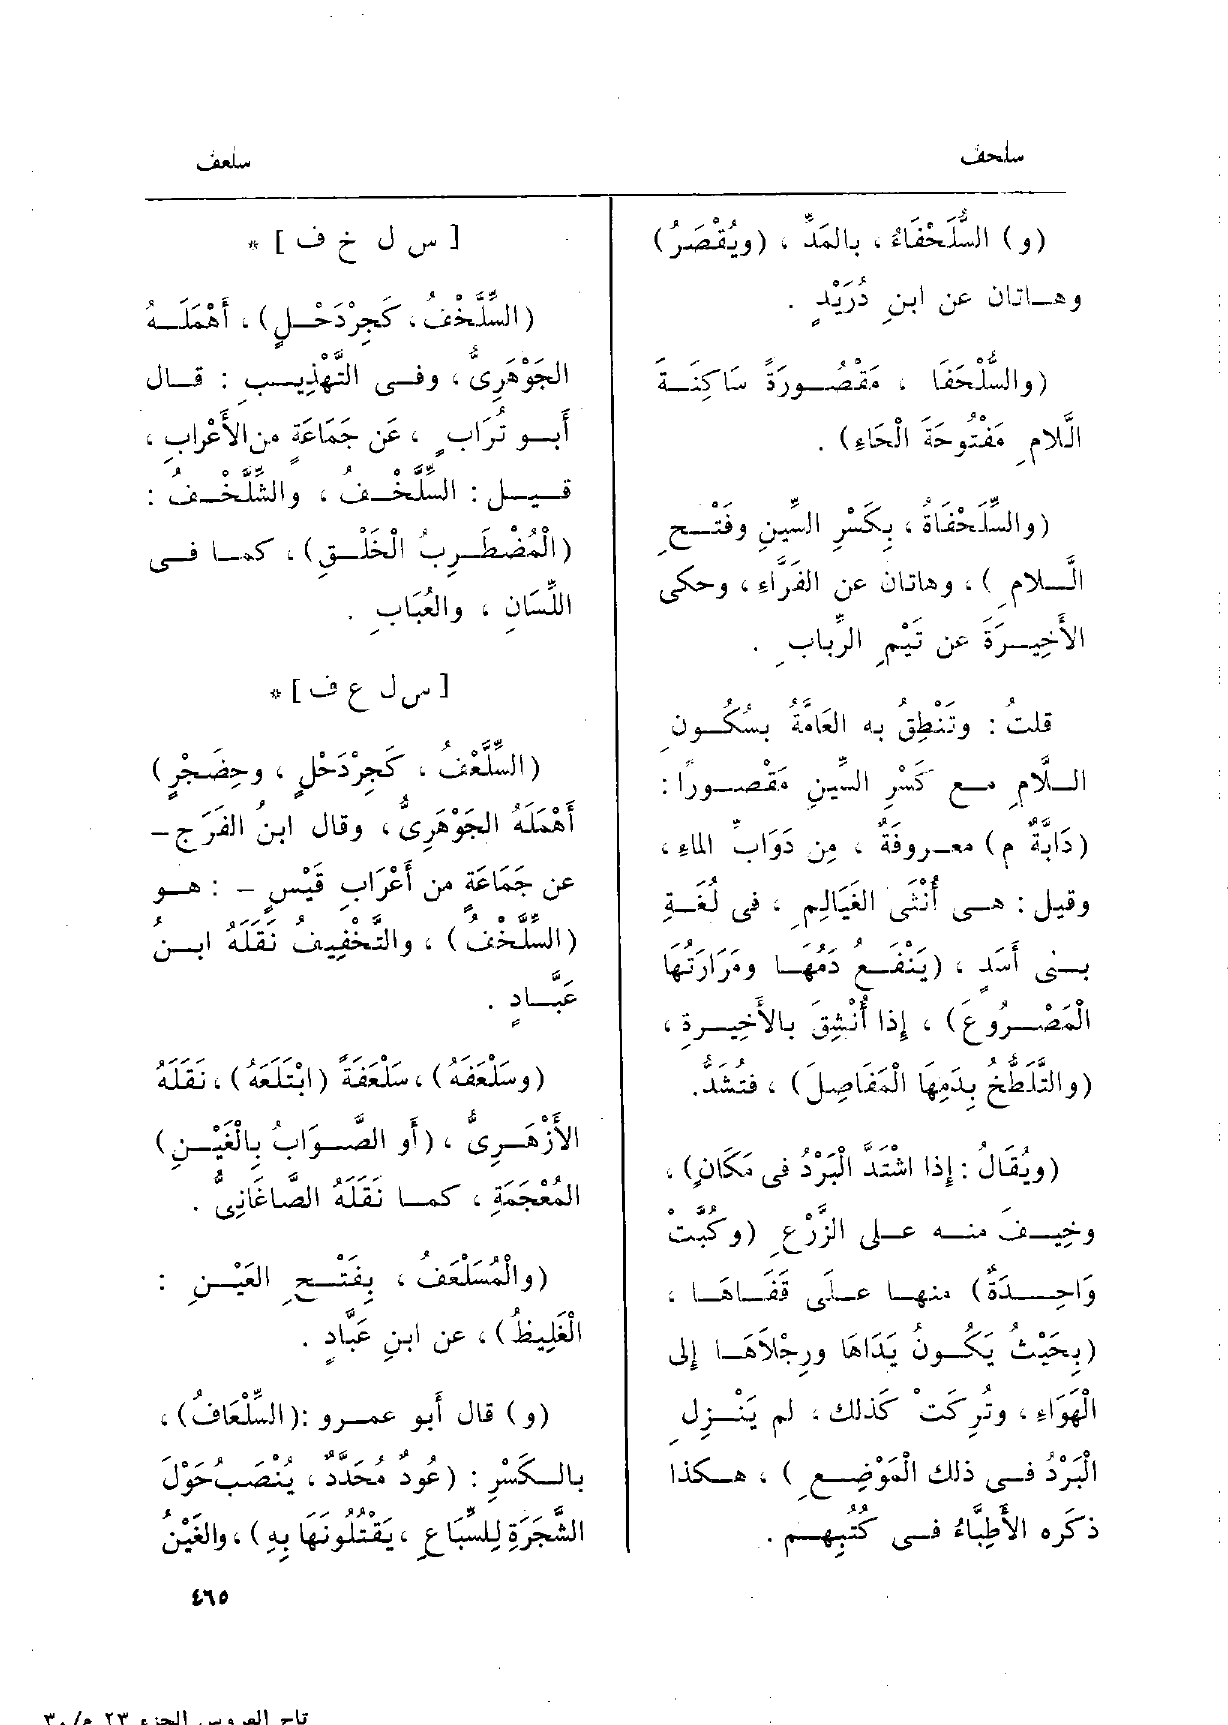 سلحف
سلعف
(و) السُّلَحْفَاءُ ، بالمَدِّ ، (ويُقْصَرُ)
وهـاتان عن ابنِ دُرَيْدٍ .
(والسُّلْحَفَا ، مَقْصُـورَةً سَاكِنَـةَ
الَّلامِ مَفْتُوحَةَ الْحَاءِ) .
(والسِّلَحْفَاةُ ، بِكَسْرِ السِّينِ وفَتْـحِ
الَّـلامِ ) ، وهاتان عن الفَرَّاءِ ، وحكى
الأَخِيـرَةَ عن تَيْمِ الرِّبابِ .
قلتُ : وتَنْطِقُ به العَامَّةُ بسُكُـونِ
الـلَّامِ مـع كَسْرِ السِّينِ مَقْصُـورًا :
(دَابَّةٌ م) معـروفَةٌ ، مِن دَوَابِّ الماءِ ،
وقيل : هـى أُنْثَى الغَيَالِمِ ، فى لُغَـةِ
بـنى أَسَدٍ ، (يَنْفَـعُ دَمُهَـا ومَرَارَتُهَا
الْمَصْـرُوعَ) ، إذا أُنْشِقَ بالأَخِيـرةِ ،
(والتَّلَطُّخُ بِدَمِهَا الْمَفَاصِلَ) ، فتُشَدُّ.
(ويُقَالُ : إذا اشْتَدَّ الْبَرْدُ فى مَكَانٍ) ،
وخِيـفَ منـه عـلى الزَّرْعِ (وكُبَّتْ
وَاحِـدَةٌ) منهـا عـلَى قَفَـاهَـا ،
(بِحَيْثُ يَكُـونُ يَدَاهَا ورِجْلَاهَـا إلى
الْهَوَاءِ ، وتُرِكَتْ كَذلك ، لم يَنْـزِلِ
الْبَرْدُ فـى ذلك الْمَوْضِـعِ ) ، هـكذا
ذكره الأَطِبَّاءُ فـى كُتُبِهـم .
[ س ل خ ف ] *
(السِّلَّخْفُ ، كَجِرْدَحْـلٍ) ، أَهْمَلَـهُ
الجَوْهَرِىُّ ، وفـى التَّهْذِيـبِ : قـال
أَبـو تُرَابٍ ، عَن جَمَاعَةٍ من الأَعْرابِ ،
قـيـل : السِّلَّخْـفُ ، والشِّلَّخْـفُ :
(الْمُضْطَـرِبُ الْخَلْـقِ) ، كمـا فـى
اللِّسَانِ ، والعُبَابِ .
[ س ل ع ف ] *
(السِّلَّعْفُ ، كَجِرْدَحْلٍ ، وحِضَجْرٍ)
أَهْمَلَهُ الجَوْهَرِىُّ ، وقال ابنُ الفَرَجِ -
عن جَمَاعَةٍ من أَعْرَابِ قَيْسٍ - : هـو
(السِّلَّخْفُ) ، والتَّخْفِيفُ نَقَلَهُ ابـنُ
عَبَّـادٍ .
(وسَلْعَفَهُ) ، سَلْعَفَةً (ابْتَلَعَهُ) ، نَقَلَهُ
الأَزْهَـرِىُّ ، (أو الصَّـوَابُ بِالْغَيْـنِ)
المُعْجَمَةِ ، كمـا نَقَلَهُ الصَّاغَانِىُّ .
(والْمُسَلْعَفُ ، بِفَتْـحِ العَيْـنِ :
الْغَلِيظُ) ، عن ابنِ عَبَّادٍ .
(و) قال أَبو عمـرو : (السِّلْعَافُ) ،
بالـكَسْرِ : (عُودٌ مُحَدَّدٌ ، يُنْصَبُ حَوْلَ
الشَّجَرَةِ لِلسِّبَاعِ ، يَقْتُلُونَهَا بِهِ) ، والغَيْنُ
٤٦٥
تاج العروس الجزء ٢٣ م/٣٠